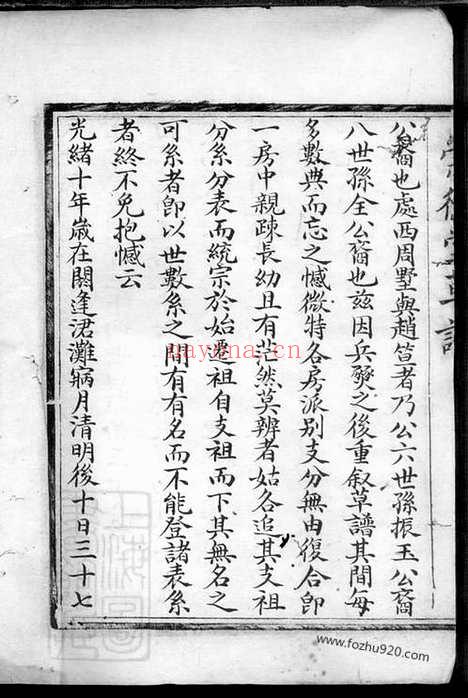 公裔也處西周墅與趙笪者乃公六世孫振玉公裔
八世孫全公裔也茲因兵燹之後重叙草譜其間每
多數典而忘之憾微特各房派別支分無由復合即
一房中親疎長幼且有茫然莫辨者姑各追其支祖
分系分表而統宗於始遷祖自支祖而下其無名之
可系者即以世數系之間有有名而不能登諸表系
者終不免抱憾云
光緒十年歲在閼逢涒灘寎月清明後十日三十七
nayona.cn
www.fozhu920.com